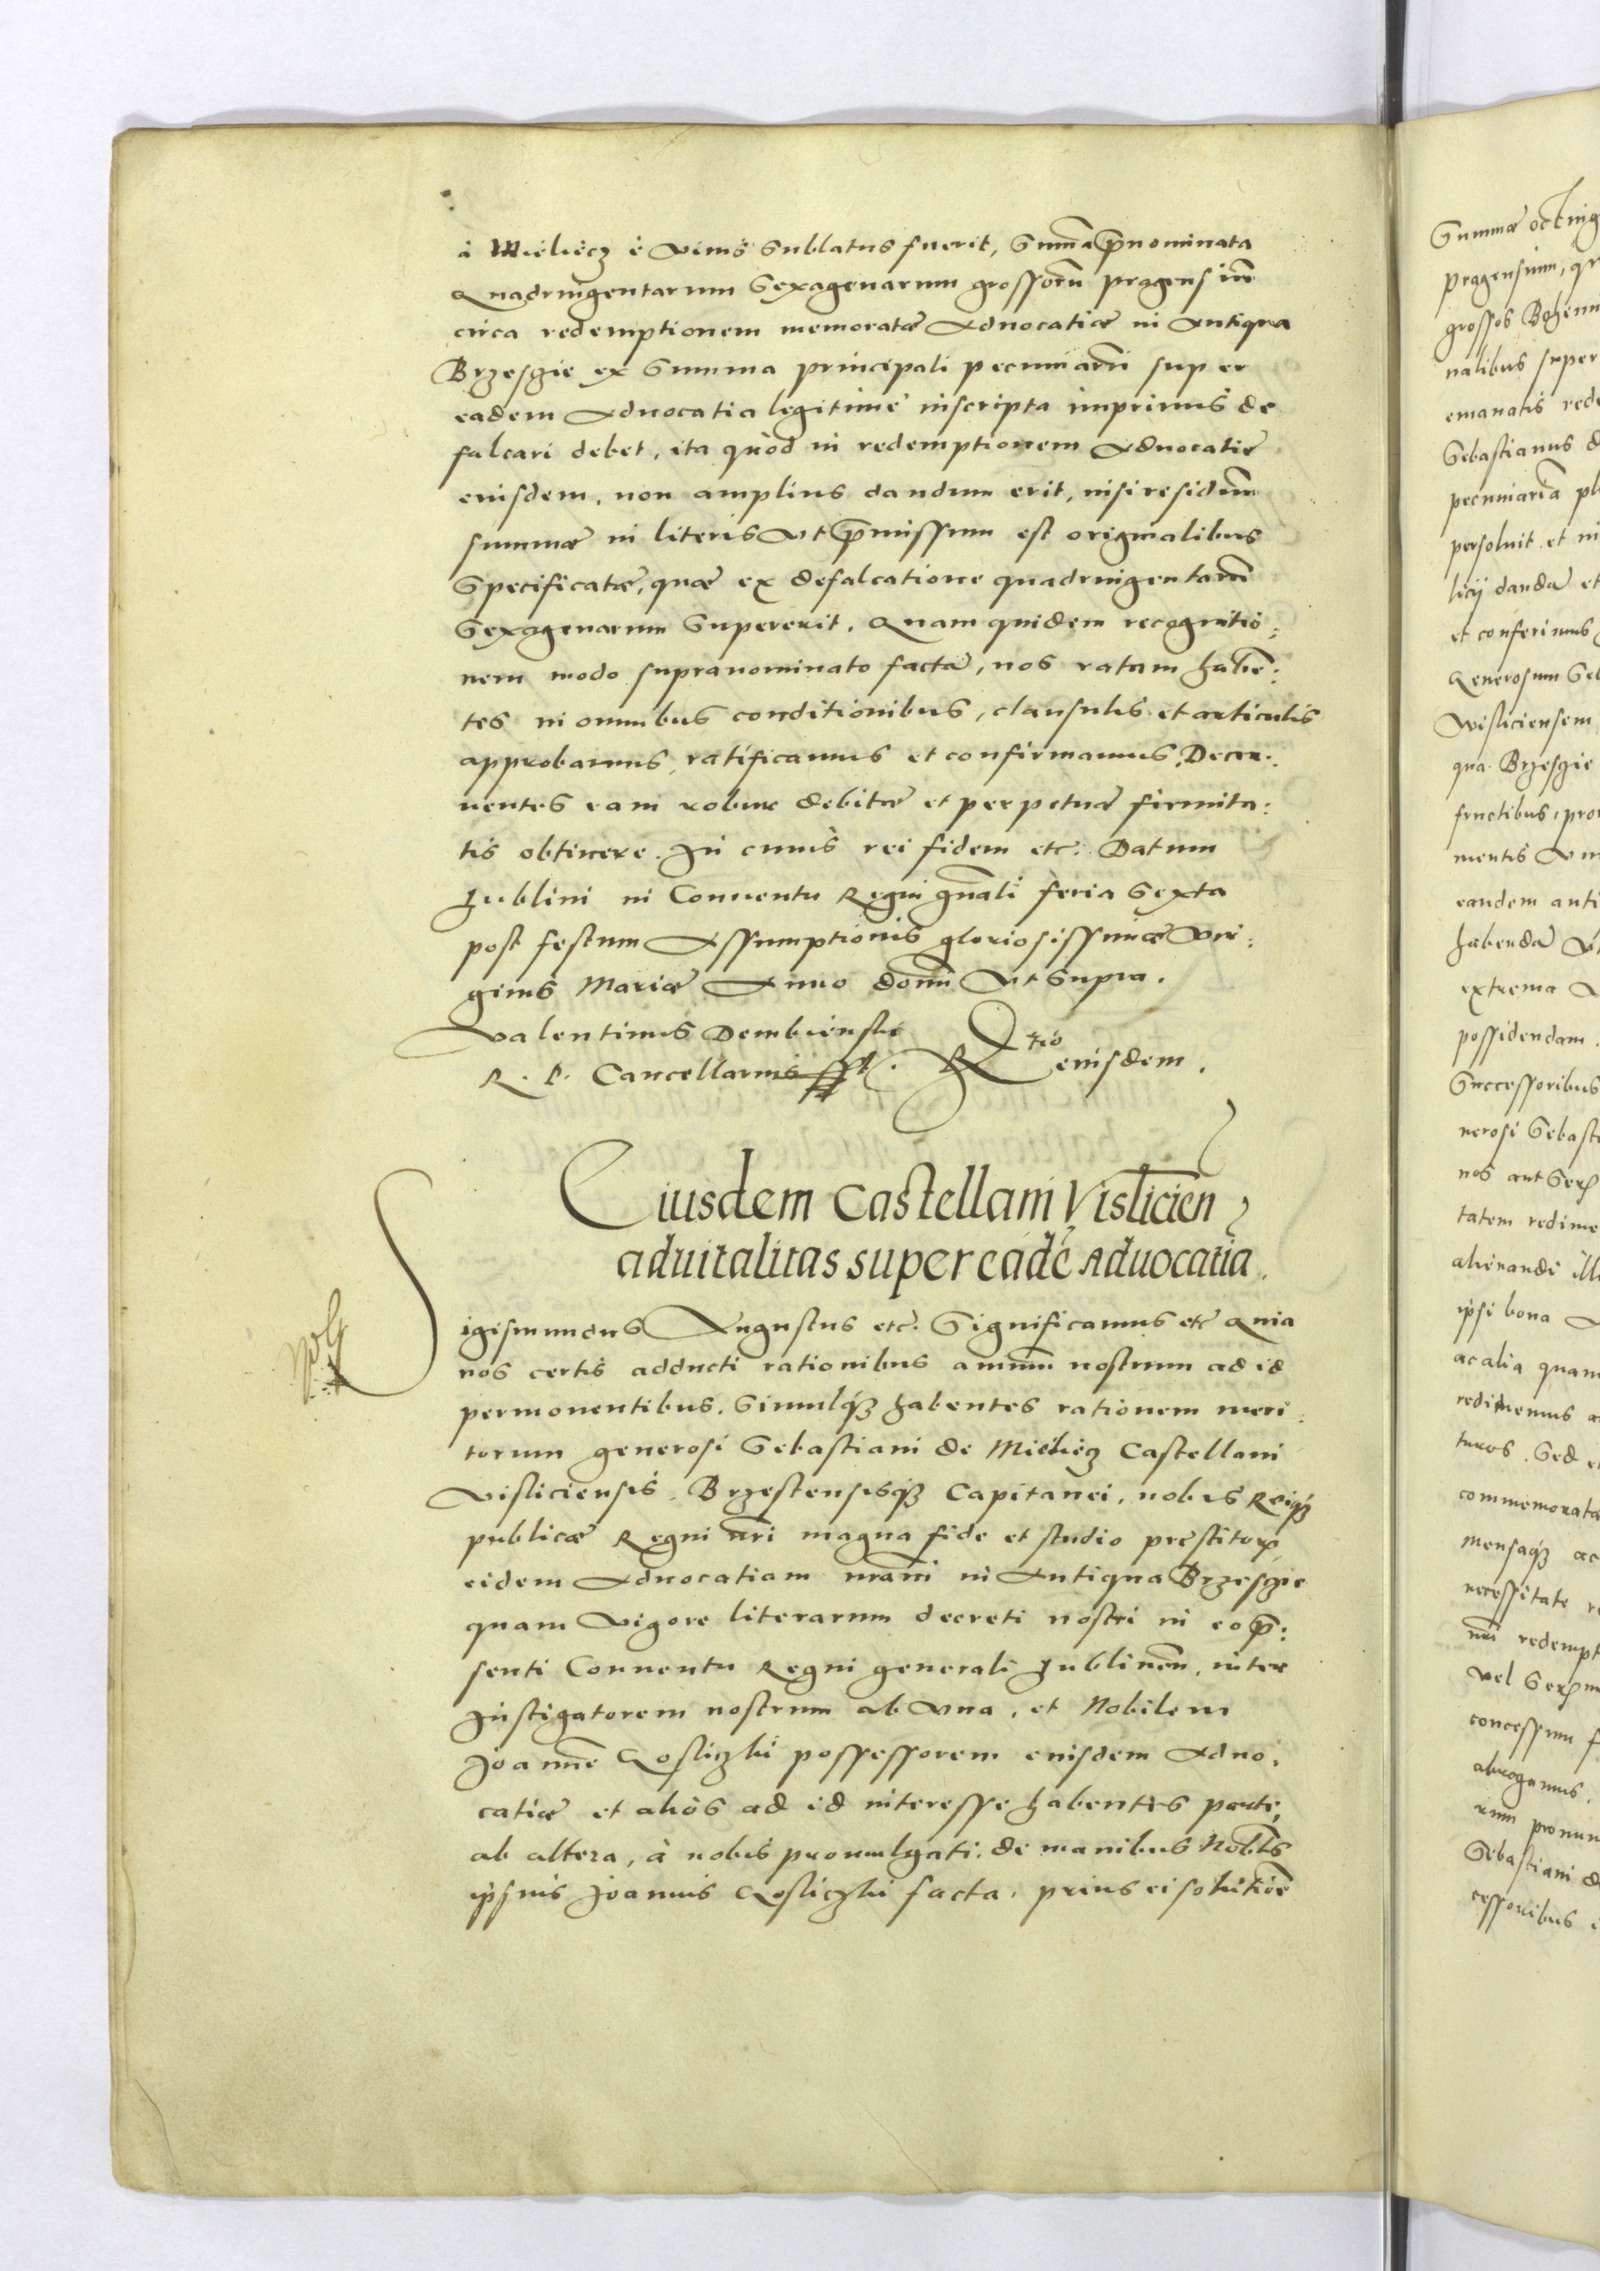 à Mieliecz è vivis sublatus fuerit, Sum̃a p̃nominata
Quadringentarum Sexagenarum grossorũ pragensiũ
circa redemptionem memoratæ Aduocatiæ in Antiqua
Brzesgie ex Summa principali pecuniarũ super
eadem Aduocatia legitime inscripta imprimis de
falcari debet, ita quòd in redemptionem Aduocatiæ
eiusdem, non amplius dandum erit, nisi residuũ
summæ in literis vt p̃missum est originalibus
Specificatæ, quæ ex defalcatione quadringentarũ
Sexagenarum Supererit. Quam quidem recognitio:
nem modo supranominato factã, nos ratam habẽ:
tes in omnibus conditionibus, clausulis et articulis
approbamus, ratificamus et confirmamus. Decer:
nentes eam robur debitæ et perpetuæ firmita:
tis obtinere. In cuius rei fidem etc. Datum
Lublini in Conuentu Regni gñali feria Sexta
post festum Assumptionis gloriosissimæ Vir:
ginis Mariæ Anno domĩ vt supra.
Valentinus Dembienski
R. P. Cancellarius sst. Rtio eiusdem.
Eiusdem Castellani Vislicien
aduitalitas super eadẽ Aduocatia.
Sigismundus Augustus etc. Significamus etc Quia
nos certis adducti rationibus animũ nostrum ad id
permonentibus. Simulq3 habentes rationem meri:
torum generosi Sebastiani de Mieliecz Castellani
Visliciensis, Brzestensisq3 Capitanei, nobis Reiq3
publicæ Regni nr̃i magna fide et studio prestitorꝝ
eidem Aduocatiam nr̃am in Antiqua Brzesgie
quam Vigore literarum decreti nostri in eo p̃:
senti Conuentu Regni generali Lublinẽn, inter
Instigatorem nostrum ab vna, et Nobilem
Joannẽ Kosliczki possessorem eiusdem Aduo:
catiæ et aliòs ad id interesse habentes parte
ab altera, à nobis promulgati, de manibus Nob̃lis
ipsius Joannis Kosliczki facta, prius ei solutiõe
Summæ
pragensium,
grossos
nalibus super
emanatis
Sebastianus
pecuniariã
persoluit et
licij dandã et
et conferimus
Generosum
Wisliciensem
qua Brzesgie
fructibus,
mentis
eandem
habendã
extrema
possidendam.
Successoribus
nerosi
nos aut
tatem
alienandi
ipsi bona
ac alia quam
redimemus
turos. Sed
mensaq3 ac
necessitate
vel
concessum
abrogamus.
Sebastiani